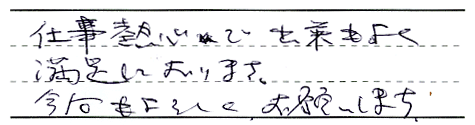 仕事熱心で出来もよく
満足しております。
今后もよろしくお願いします